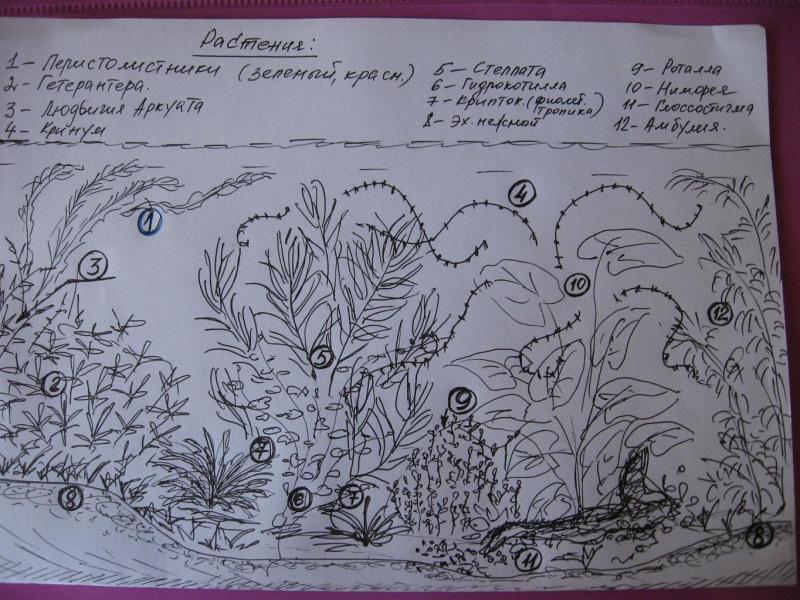 Растения:
1 – Перистолистники (зеленый, красн.)
2 – Гетерантера.
3 – Людвигия Аркуата
4 – Кринум
5 – Стеллата
6 – Гидрокотилла
7 – Крипток. (фиолет. Тропика)
8 – Эх. нежный
9 – Роталла
10 – Нимфея
11 – Глоссостигма
12 – Амбулия.
1
3
4
10
12
5
2
9
7
8
6
7
11
8